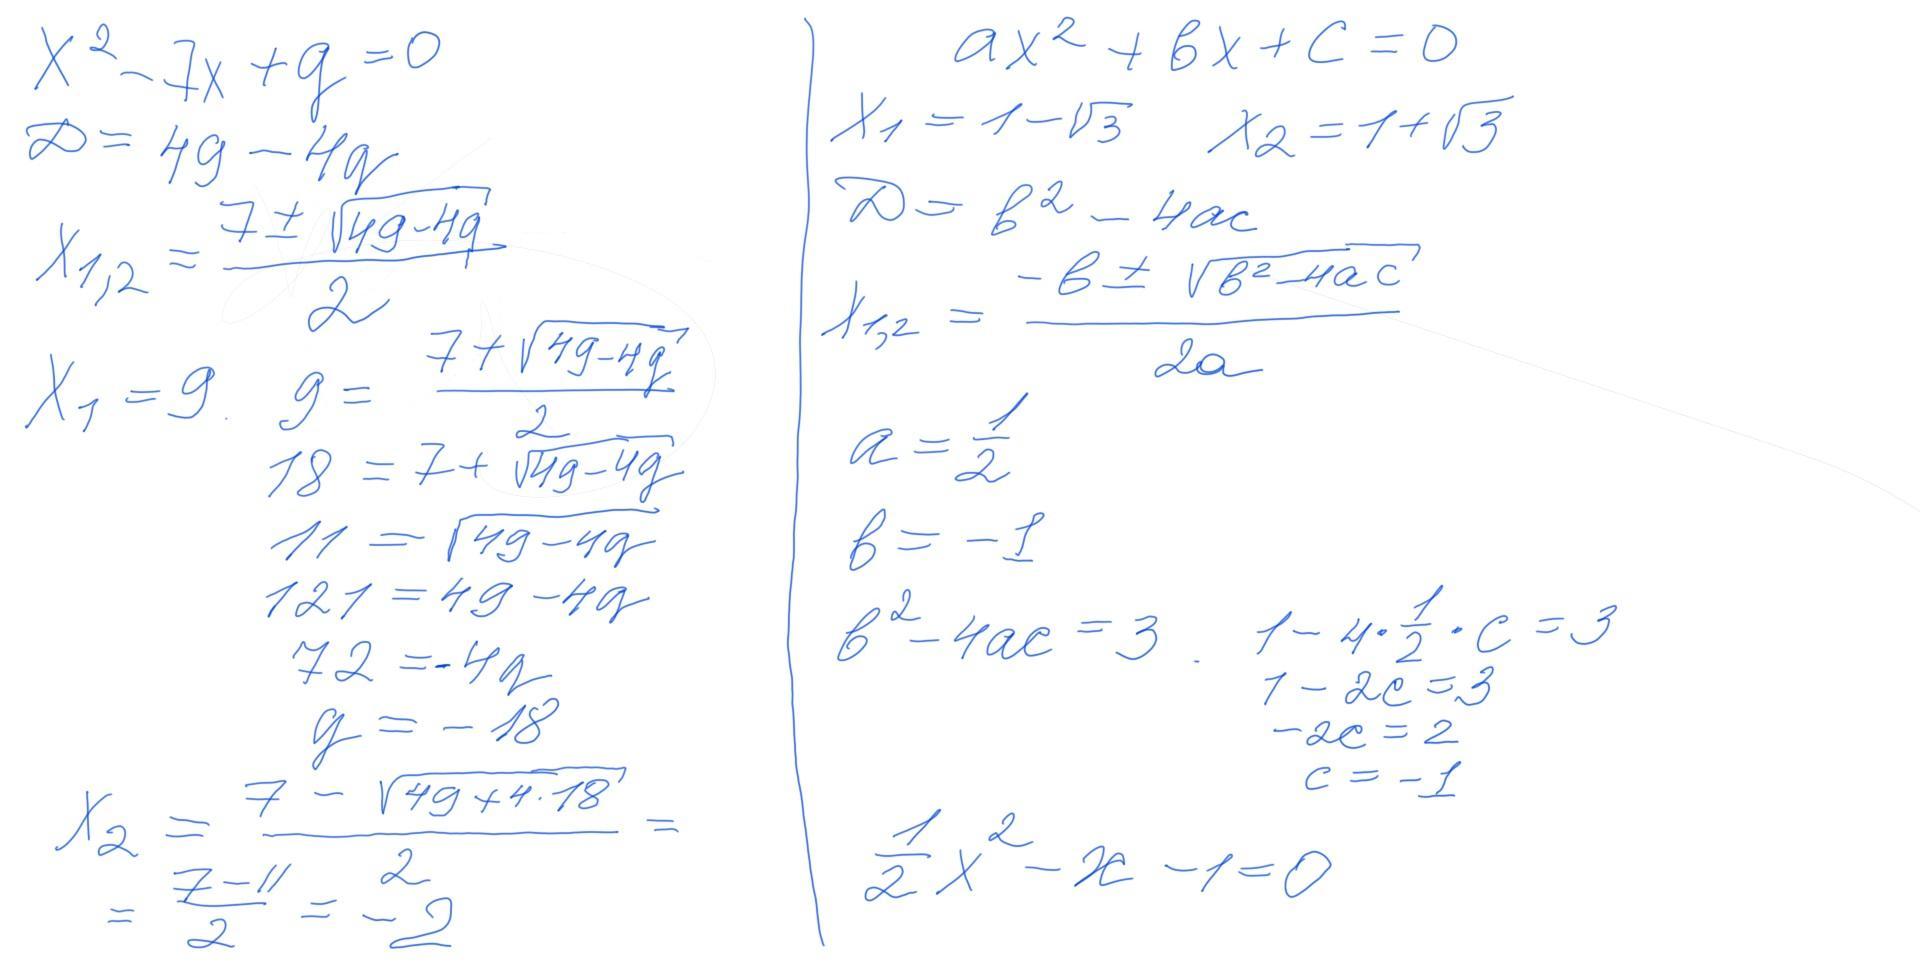 x² - 7x + q = 0
D = 49 - 4q
x₁,₂ = (7 ± √(49-4q)) / 2
x₁ = 9. 9 = (7 + √(49-4q)) / 2
18 = 7 + √(49-4q)
11 = √(49-4q)
121 = 49 - 4q
72 = -4q
q = -18
x₂ = (7 - √(49+4·18)) / 2 =
= (7-11) / 2 = -2
ax² + bx + c = 0
x₁ = 1-√3 x₂ = 1+√3
D = b² - 4ac
x₁,₂ = (-b ± √(b²-4ac)) / 2a
a = 1/2
b = -1
b² - 4ac = 3. 1 - 4·1/2·c = 3
1 - 2c = 3
-2c = 2
c = -1
1/2 x² - x - 1 = 0